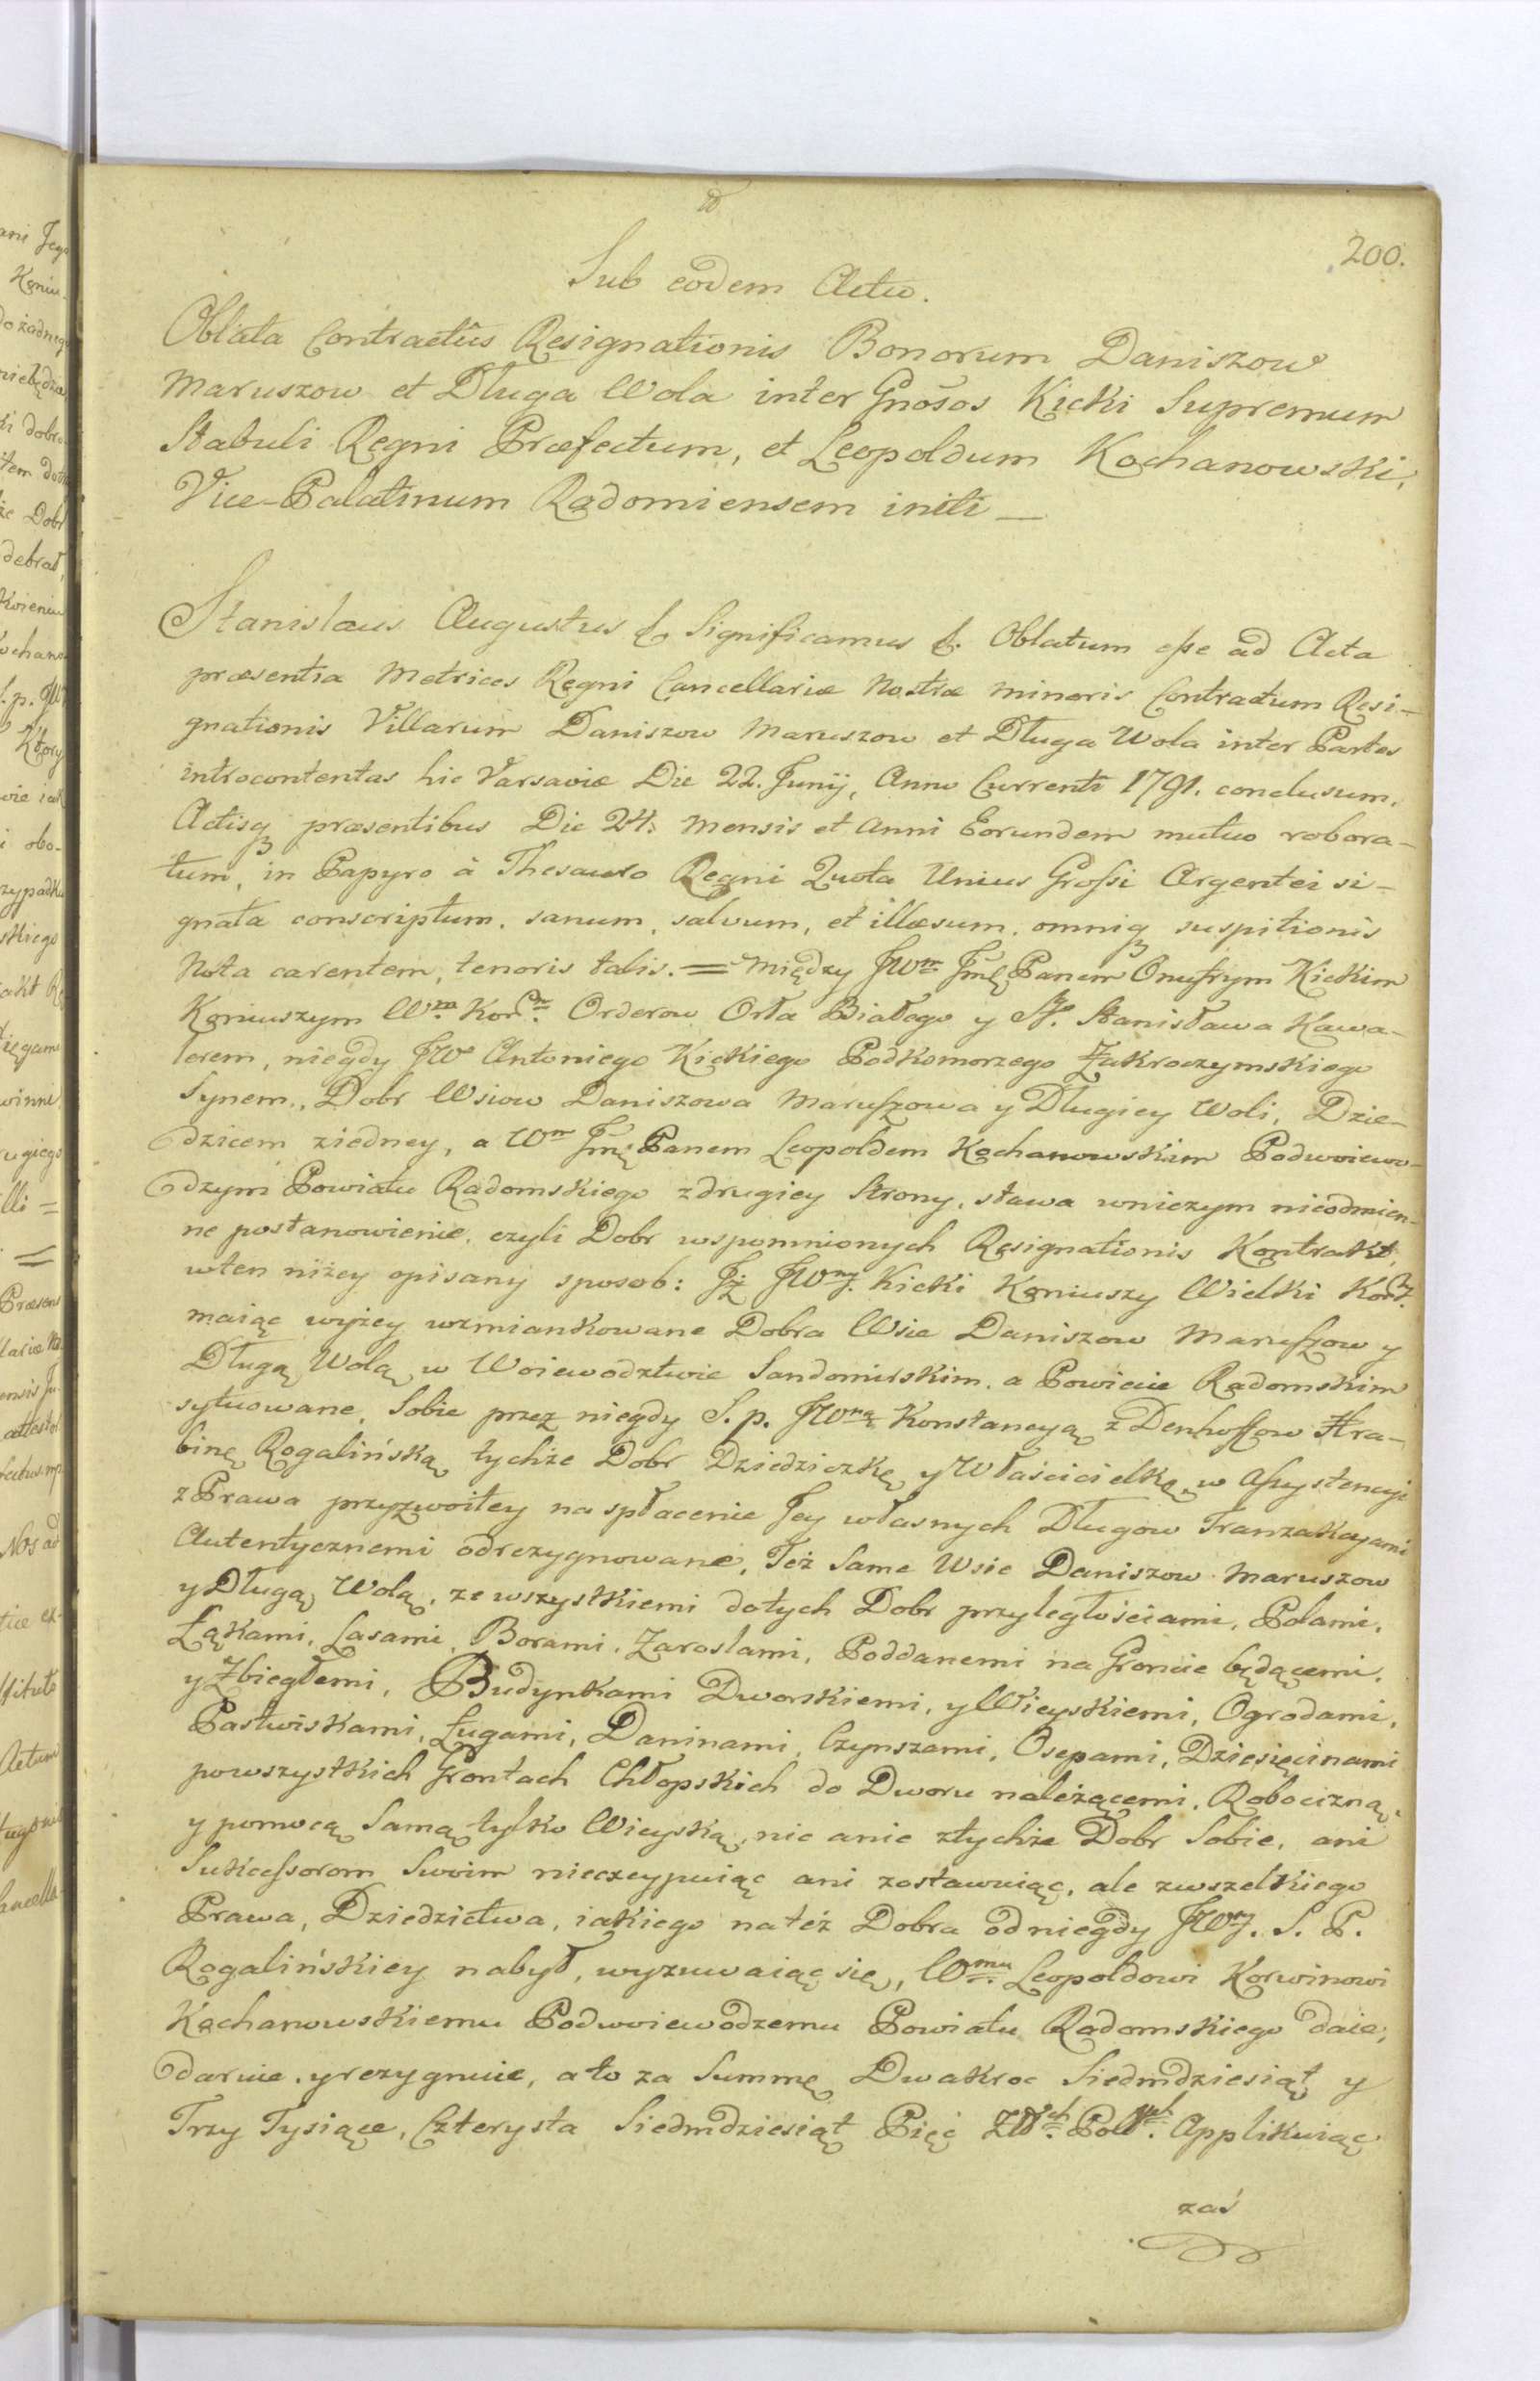 200.
Sub eodem Actu.
Oblata Contractûs Resignationis Bonorum Daniszow
Maruszow et Długa Wola inter Gnosos Kicki Supremum
Stabuli Regni Præfectum, et Leopoldum Kochanowski,
Vice-Palatinum Radomiensem initi —
Stanislaus Augustus & Significamus &. Oblatum esse ad Acta
præsentia Metrices Regni Cancellariæ Nostræ Minoris Contractum Resi-
gnationis Villarum Daniszow Maruszow et Długa Wola inter Partes
introcontentas hic Varsaviæ Die 22. Junij, Anno Currenti 1791. conclusum,
Actisq præsentibus Die 24. Mensis et Anni Eorundem mutuo robora-
tum, in Papyro à Thesauro Regni Quota Unius Grossi Argentei si-
gnata conscriptum, sanum, salvum, et illæsum, omniq suspitionis
Nota carentem, tenoris talis. = Między JWm Jmę Panem Onufrym Kickim
Koniuszym Wm Korn Orderow Orła Białego y Sg. Stanisława Kawa-
lerem, niegdy JW Antoniego Kickiego Podkomorzego Zakroczymskiego
Synem, Dobr Wsiow Daniszowa Maruszowa y Długiey Woli, Dzie-
dzicem ziedney, a Wm Jmę Panem Leopoldem Kochanowskim Podwoiewo-
dzym Powiatu Radomskiego zdrugiey Strony, stawa wniczym nieodmien-
ne postanowienie, czyli Dobr wspomnionych Resignationis Kontrakt,
wten niżey opisany sposob: Jż JWny. Kicki Koniuszy Wielki Kor.
maiąc wyżey wzmiankowane Dobra Wsie Daniszow Maruszow y
Długą Wolą w Woiewodztwie Sandomirskim, a Powiecie Radomskim
sytuowane, Sobie przez niegdy S. p. JWną Konstancyą z Denhoffow Hra-
binę Rogalińską tychże Dobr Dziedziczkę y Właścicielkę, w Assystencyi
z Prawa przyzwoitey na spłacenie Jey własnych Długow Tranzakcyami
Autentycznemi odrezygnowane, Też Same Wsie Daniszow Maruszow
y Długą Wolą, ze wszystkiemi dotych Dobr przyległościami, Polami,
Łąkami, Lasami, Borami, Zaroslami, Poddanemi na Groncie będącemi,
y Zbiegłemi, Budynkami Dworskiemi, y Wieyskiemi, Ogrodami,
Pastwiskami, Ługami, Daninami, Czynszami, Osepami, Dziesięcinami
powszystkich Grontach Chłopskich do Dworu należącemi, Robocizną,
y pomocą Samą tylko Wieyską, nic anic ztychże Dobr Sobie, ani
Sukcessorom Swoim nieexcypuiąc ani zostawuiąc, ale zwszelkiego
Prawa, Dziedzictwa, iakiego na też Dobra od niegdy JWny. S. P.
Rogalińskiey nabył, wyzuwaiąc się, Wmu Leopoldowi Korwinowi
Kochanowskiemu Podwoiewodzemu Powiatu Radomskiego daie,
daruie, y rezygnuie, a to za Summę Dwakroc Siedmdziesiąt y
Trzy Tysiące, Czterysta Siedmdziesiąt Pięć Złch Pol. Applikuiąc
zaś